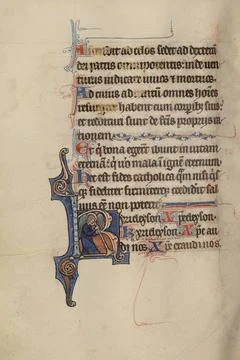 Ascendit ad celos sedet ad dexteram
dei patris omnipotentis: inde ven
turus iudicare uiuos et mortuos.
Ad cuius aduentum omnes homines
resurgere habent cum corporibus suis:
et reddituri sunt de factis propriis ra
tionem.
Et qui bona egerunt ibunt in uitam
eternam: qui uero mala in ignem eternum
Hec est fides catholica quam nisi quis
que fideliter firmiterque crediderit sal
uus esse non poterit.
Kyrieleyson. Xpeleyson.
Kyrieleyson. Xpe au
di nos. Xpe exaudi nos.